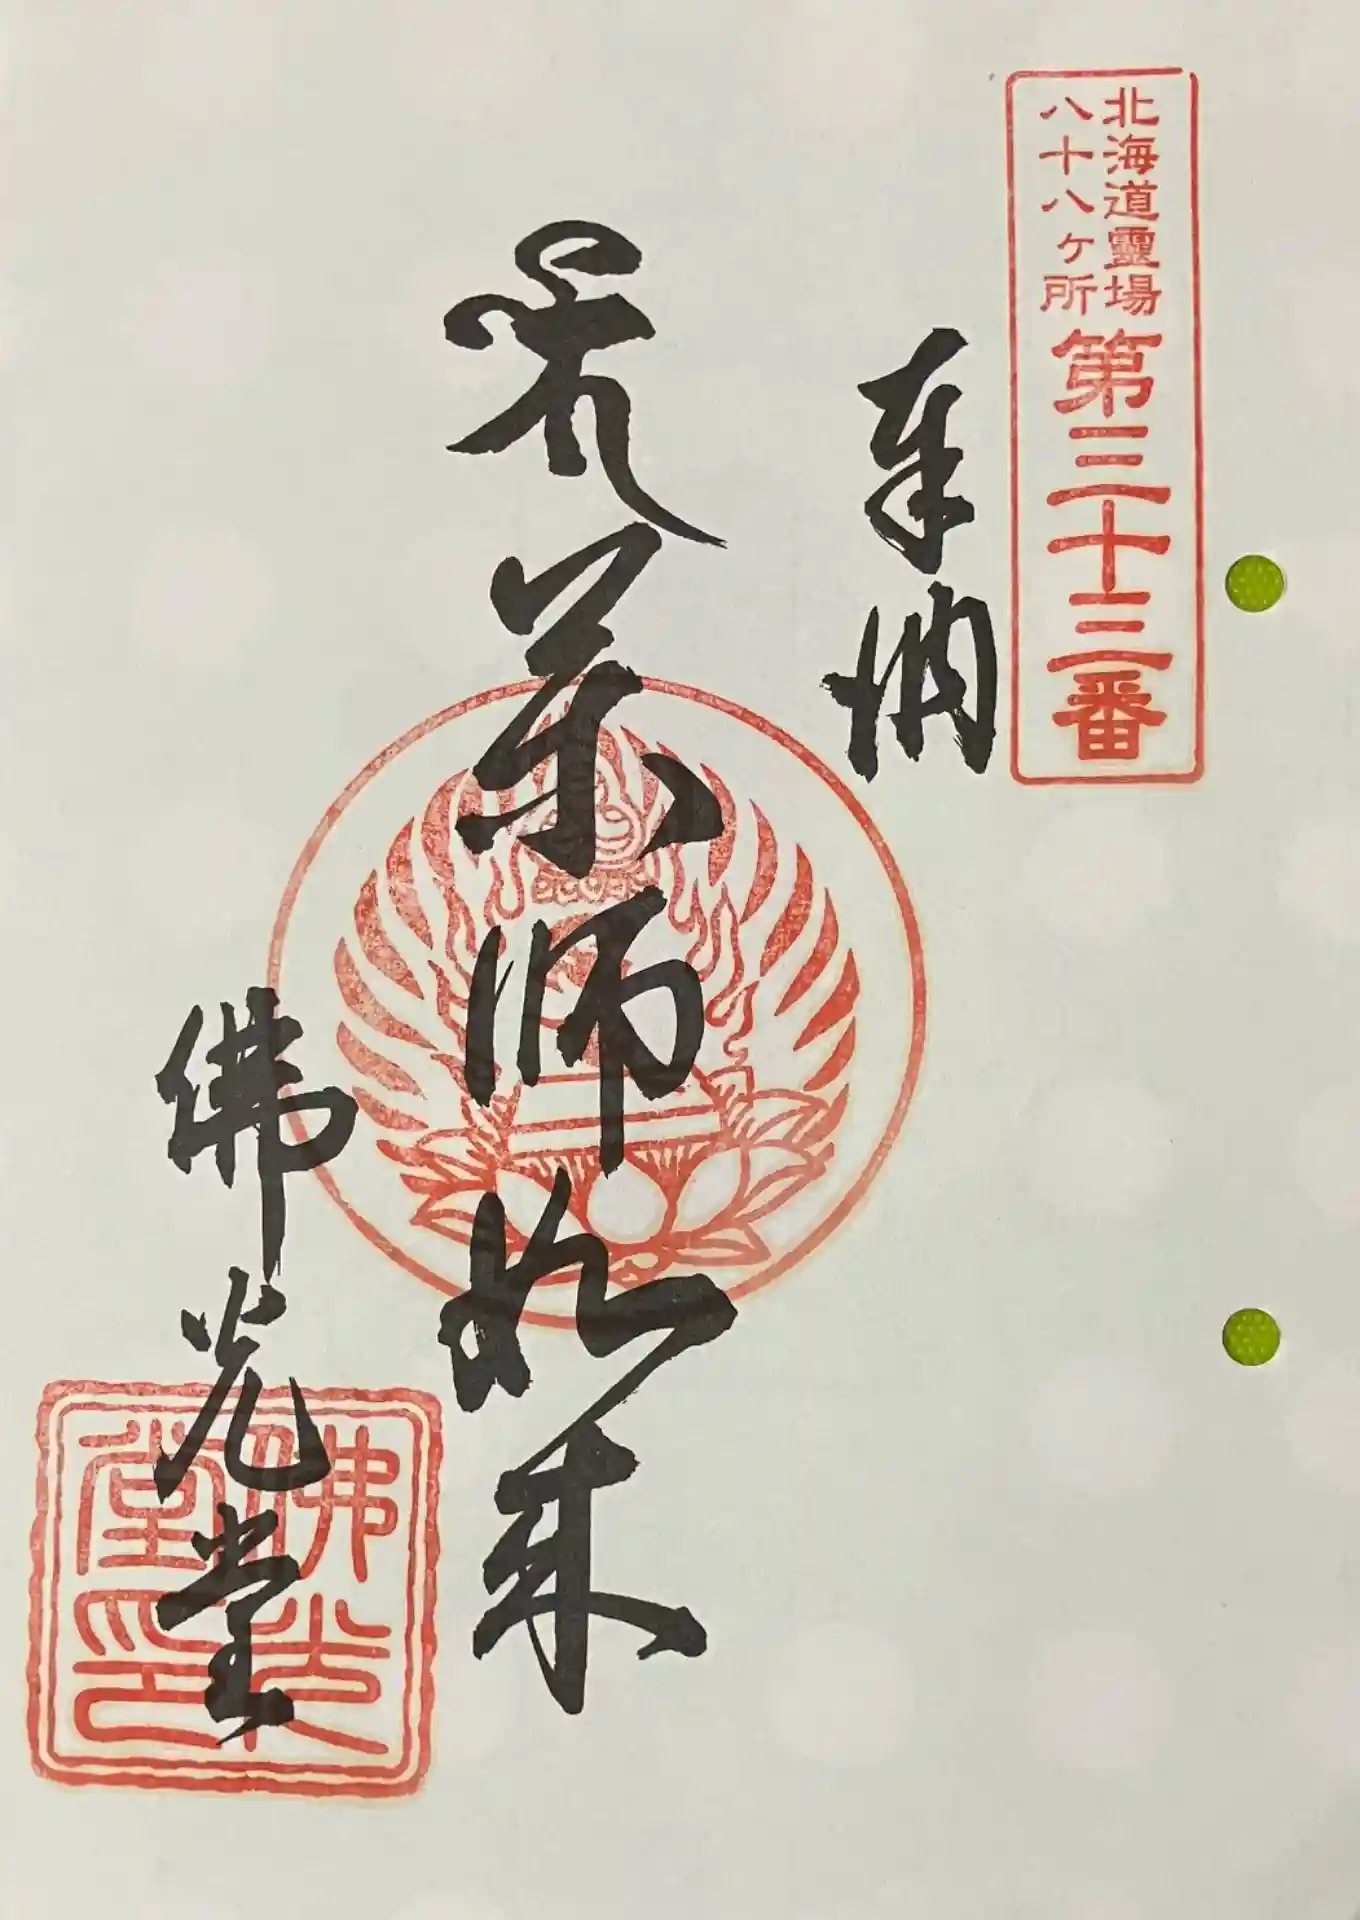 北海道霊場
八十八ヶ所
第三十三番
奉納
薬師如来
佛光堂
佛光
堂印